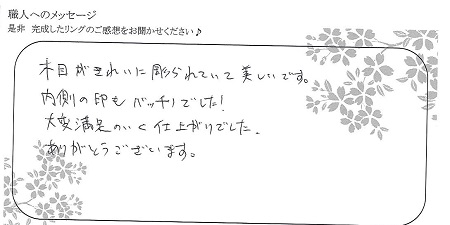 職人へのメッセージ
是非 完成したリングのご感想をお聞かせください♪
木目がきれいに彫られていて美しいです。
内側の印もバッチリでした!
大変満足のいく仕上がりでした。
ありがとうございます。